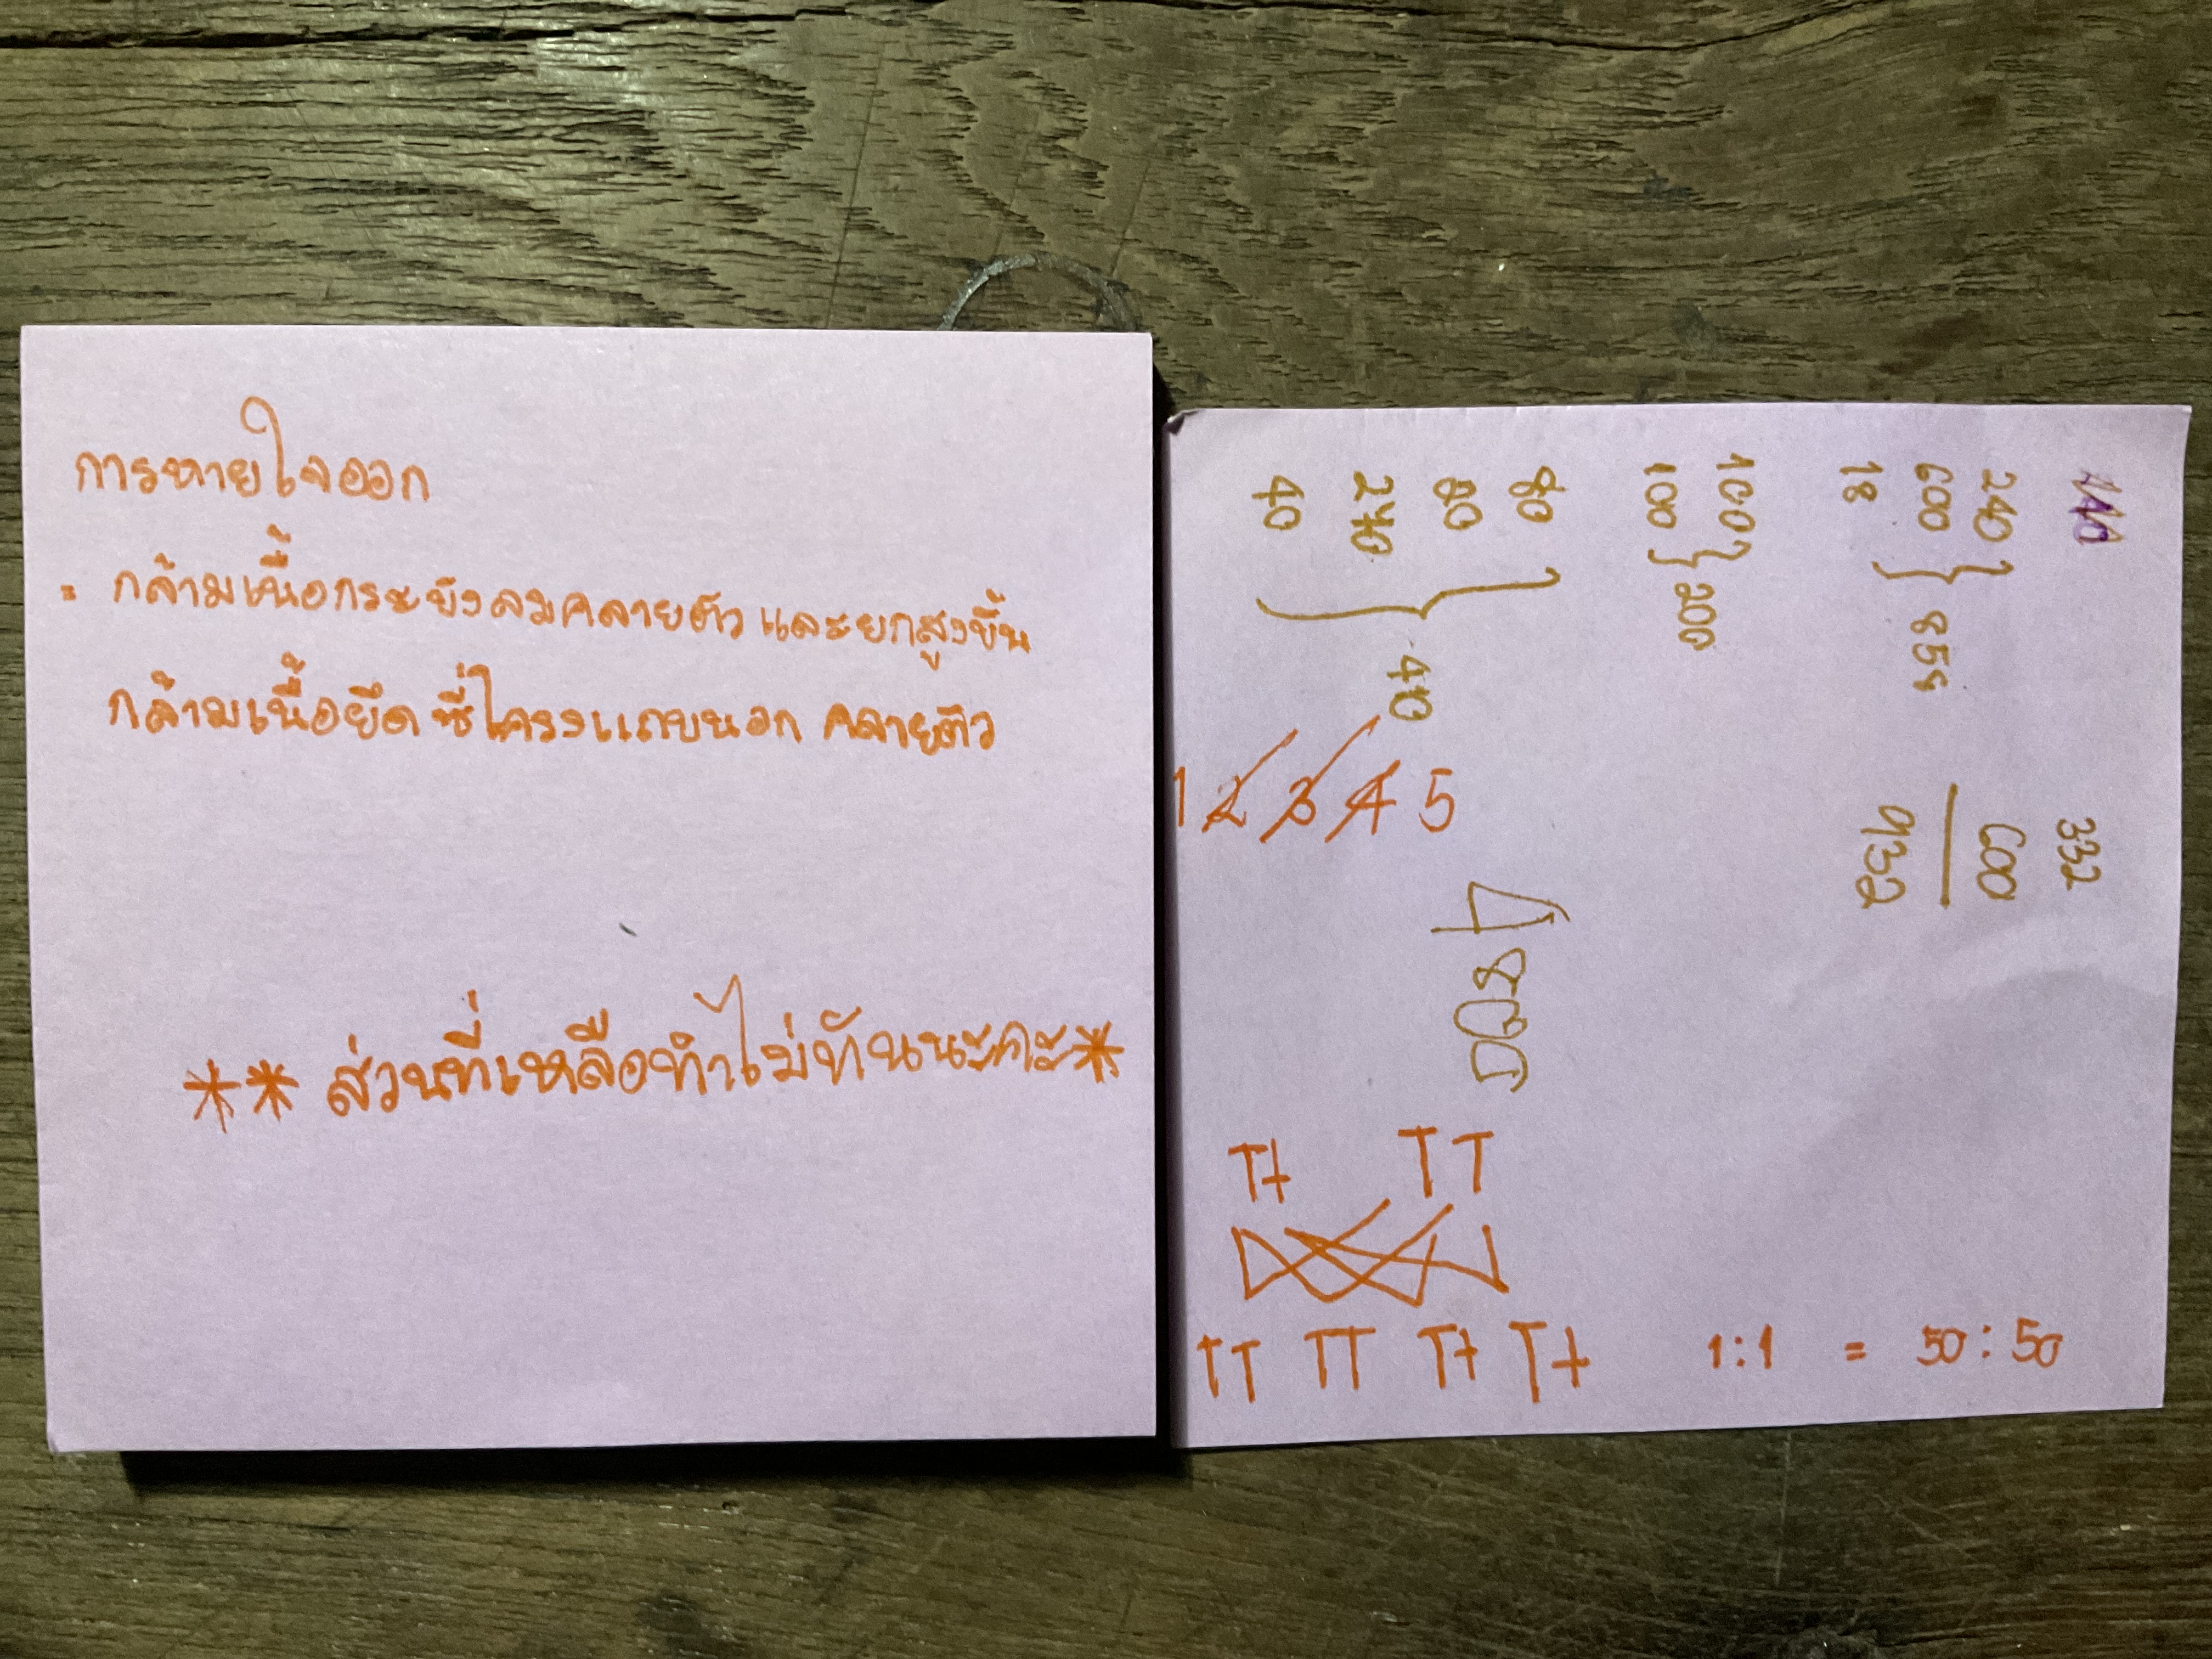 การหายใจออก
= กล้ามเนื้อกระบังลมคลายตัว และยกสูงขึ้น
กล้ามเนื้อยึดซี่โครงแถบนอก คลายตัว
** ส่วนที่เหลือทำไม่ทันนะคะ*
240
600 } 858
18
100 } 200
100
80
80
240
40
} 440
332
600
932
1 2 3 4 5
Tt TT
TT TT Tt Tt 1:1 = 50:50